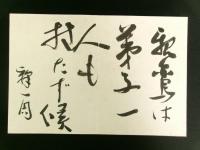 親鸞は
弟子一
人も
持たず候
釋一円